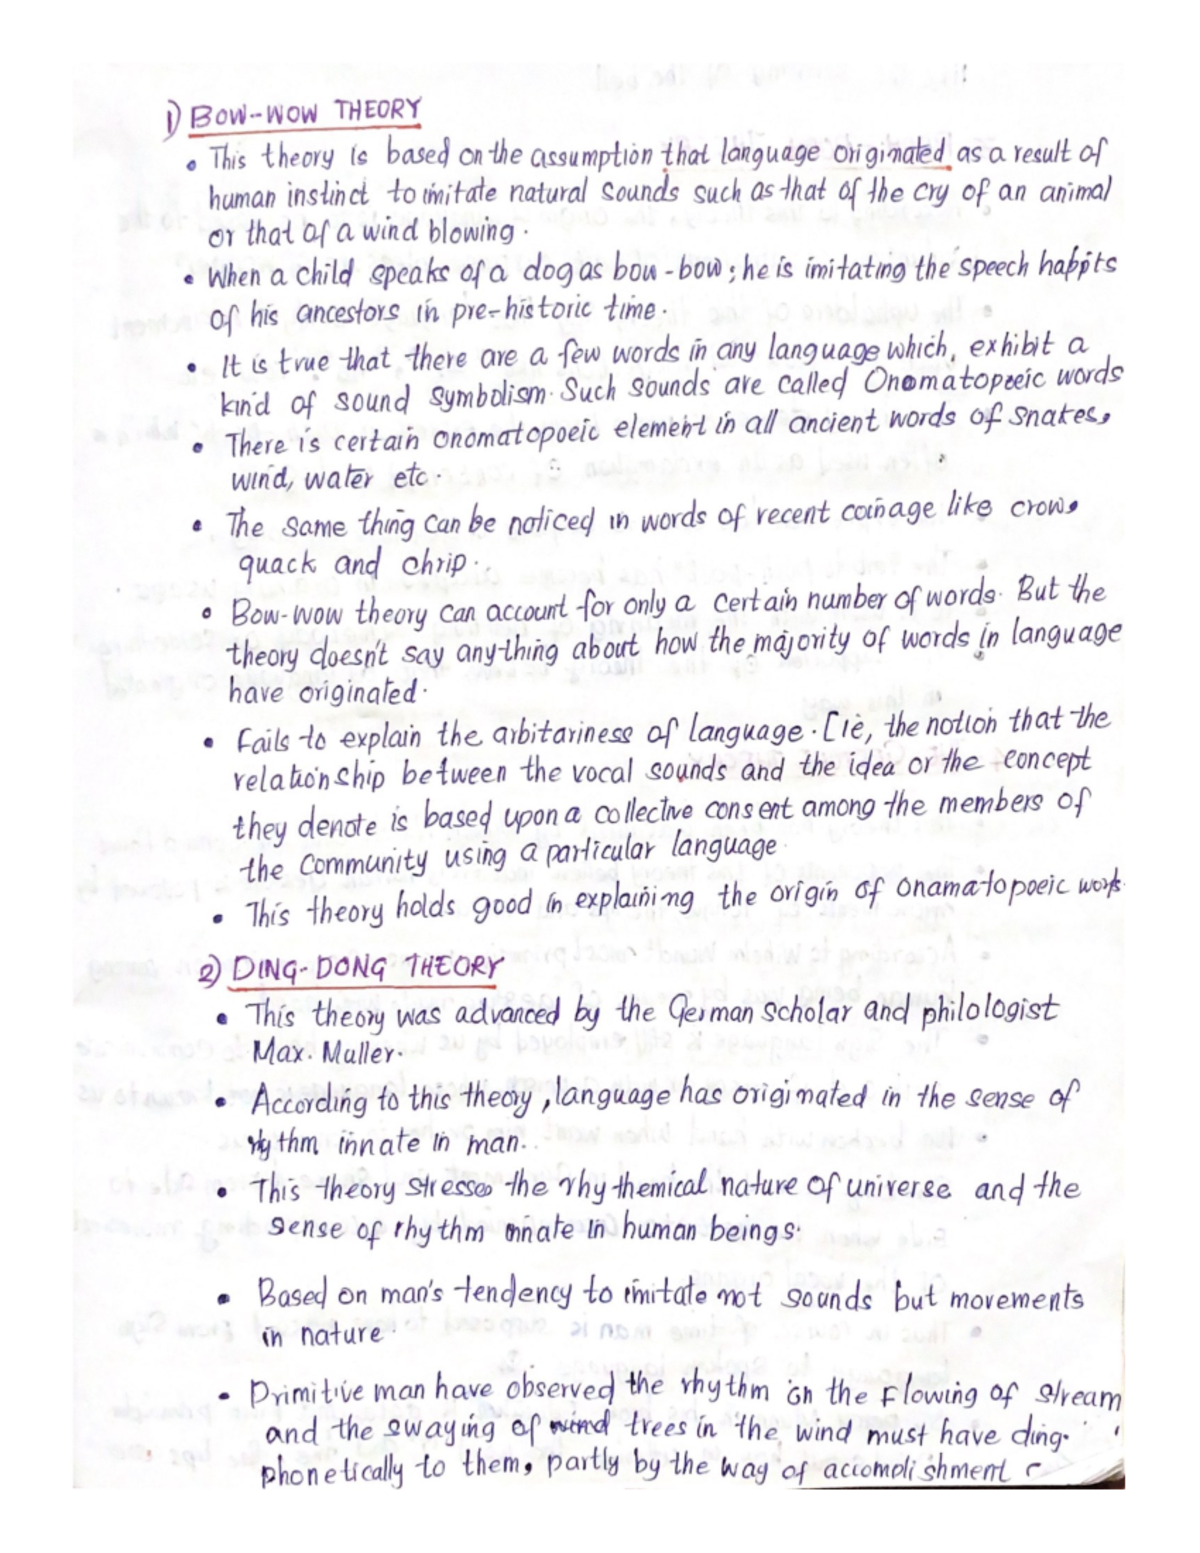 1) BOW-WOW THEORY
• This theory is based on the assumption that language originated as a result of
human instinct to imitate natural sounds such as that of the cry of an animal
or that of a wind blowing.
• When a child speaks of a dog as bow-bow; he is imitating the speech habits
of his ancestors in pre-historic time.
• It is true that there are a few words in any language which, exhibit a
kind of sound symbolism. Such sounds are called Onomatopoeic words
• There is certain onomatopoeic element in all ancient words of snakes,
wind, water etc.
• The same thing can be noticed in words of recent coinage like crow,
quack and chrip.
• Bow-wow theory can account for only a certain number of words. But the
theory doesn't say anything about how the majority of words in language
have originated.
• Fails to explain the arbitariness of language. [ie, the notion that the
relationship between the vocal sounds and the idea or the concept
they denote is based upon a collective consent among the members of
the community using a particular language.
• This theory holds good in explaining the origin of onamatopoeic words.
2) DING-DONG THEORY
• This theory was advanced by the German scholar and philologist
Max. Muller.
• According to this theory, language has originated in the sense of
rhythm innate in man.
• This theory stresses the rhythemical nature of universe and the
sense of rhythm innate in human beings.
• Based on man's tendency to imitate not sounds but movements
in nature.
• Primitive man have observed the rhythm in the flowing of stream
and the swaying of wind trees in the wind must have ding.
phonetically to them, partly by the way of accomplishment